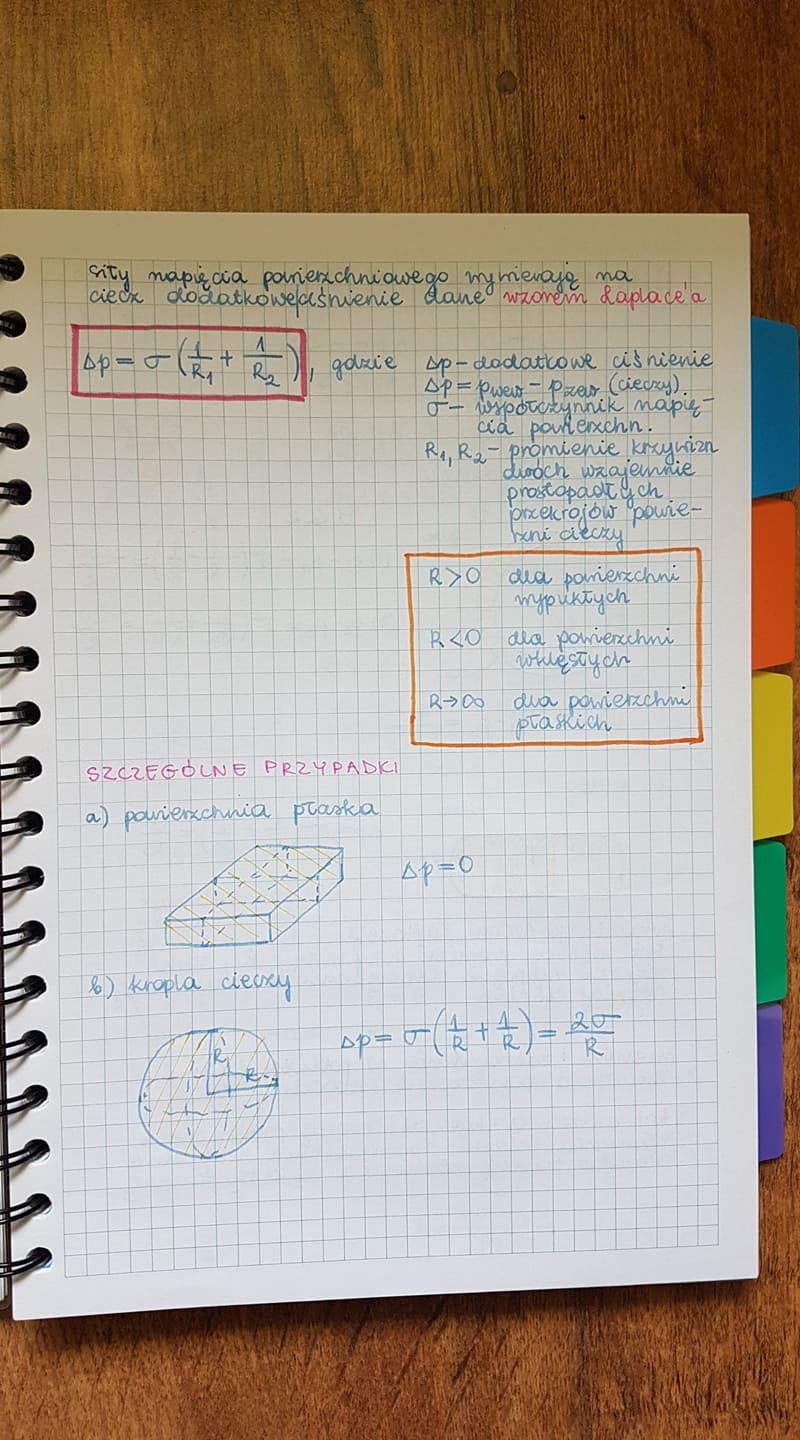 Siły napięcia powierzchniowego wywierają na
ciecz dodatkowe ciśnienie dane wzorem Laplace'a
Δp = σ (1/R₁ + 1/R₂), gdzie Δp - dodatkowe ciśnienie
Δp = pwew - pzew (cieczy).
σ - współczynnik napię-
cia powierzchn.
R₁, R₂ - promienie krzywizn
dwóch wzajemnie
prostopadłych
przekrojów powie-
rzni cieczy
R > 0 dla powierzchni
wypukłych
R < 0 dla powierzchni
wklęsłych
R → ∞ dla powierzchni
płaskich
SZCZEGÓLNE PRZYPADKI
a) powierzchnia płaska
Δp = 0
b) kropla cieczy
Δp = σ (1/R + 1/R) = 2σ/R
R
R